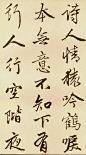 詩人情猿吟鶴唳
本無意不知下有
行人行空階夜